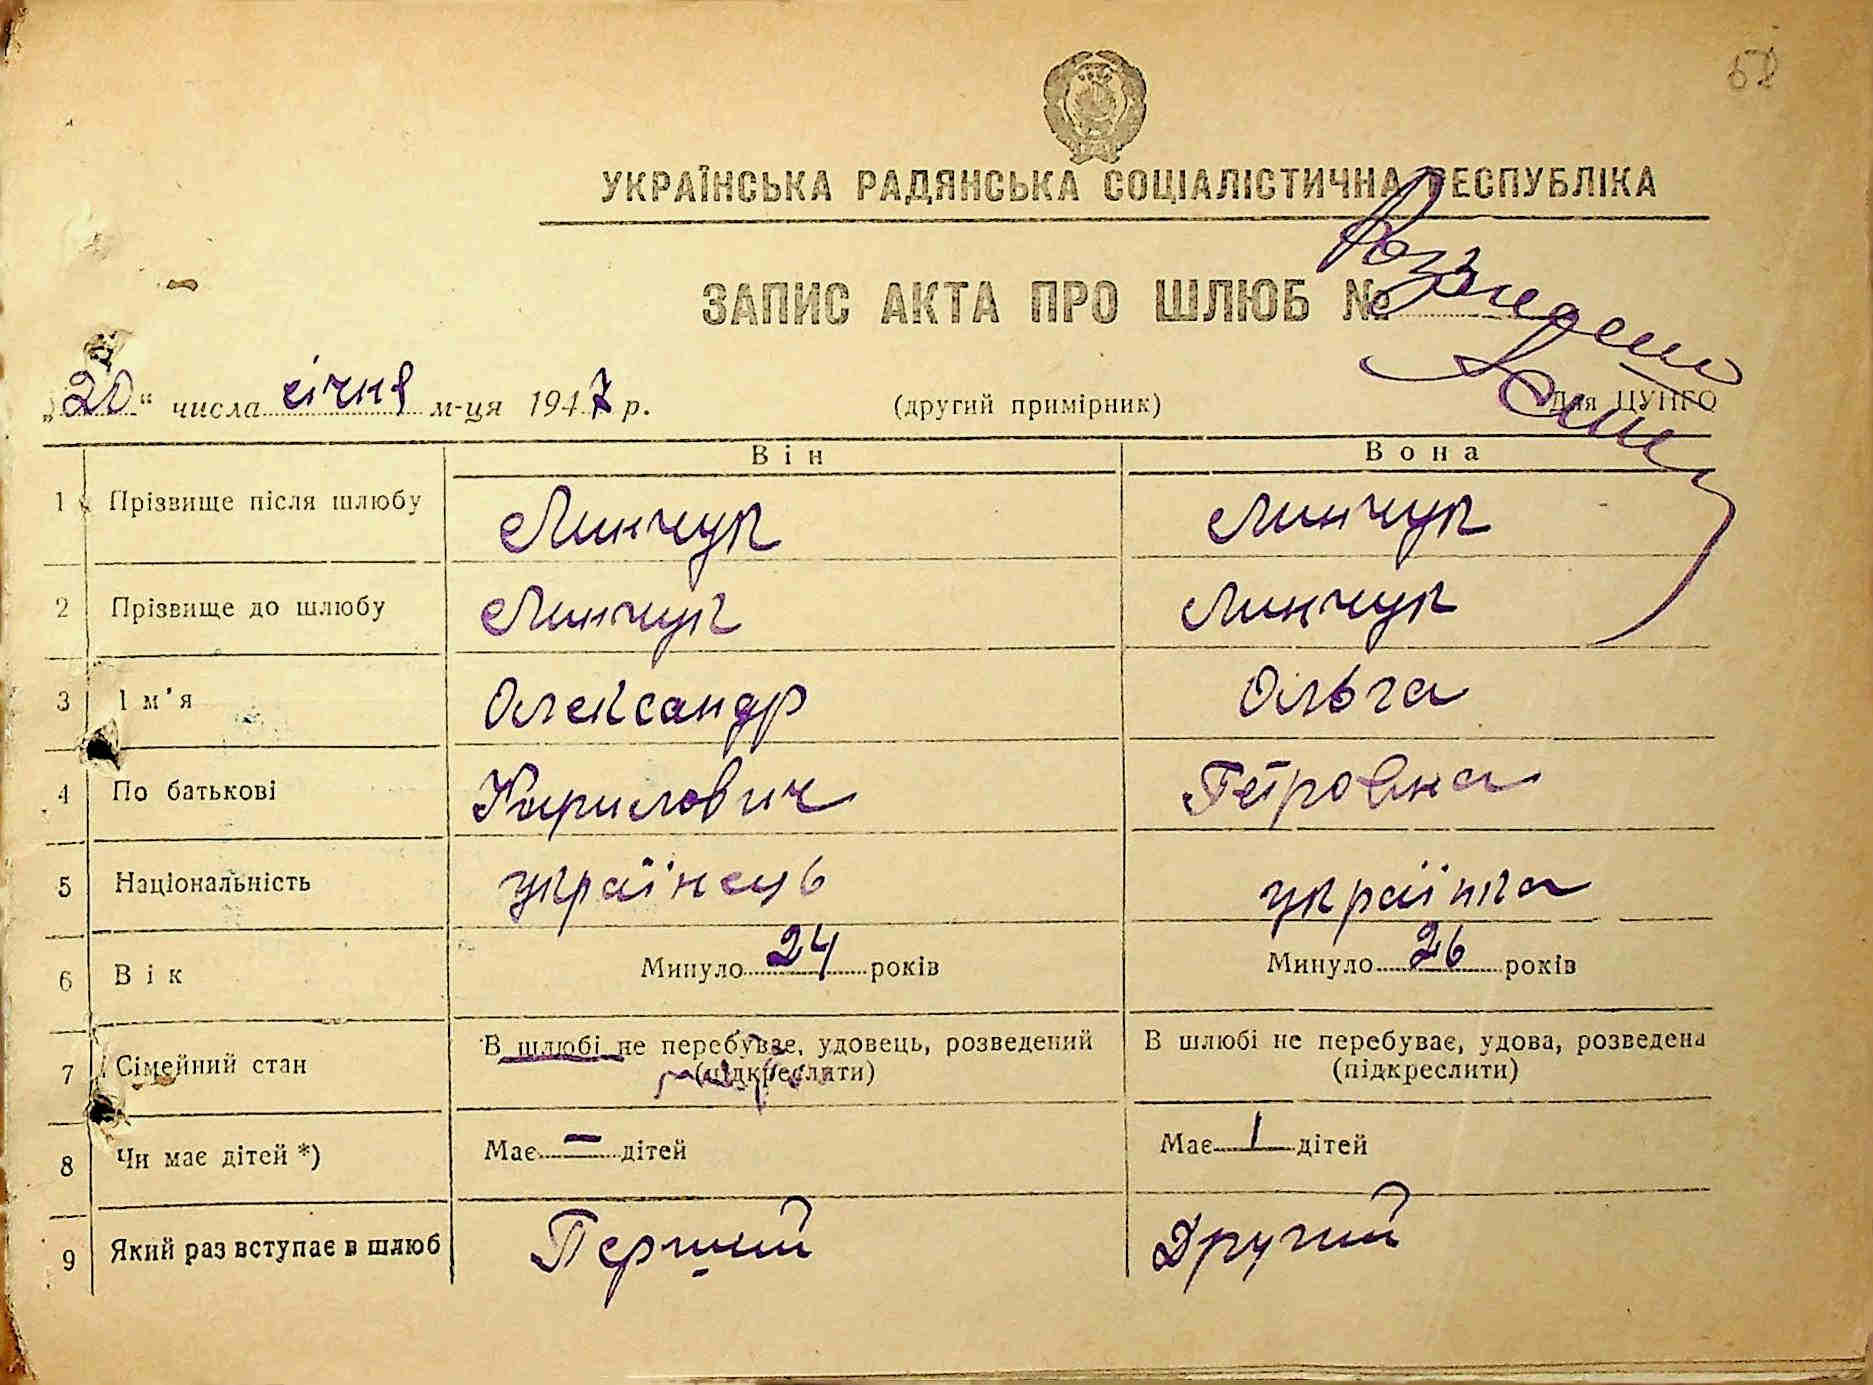 58
УКРАЇНСЬКА РАДЯНСЬКА СОЦІАЛІСТИЧНА РЕСПУБЛІКА
ЗАПИС АКТА ПРО ШЛЮБ №
„20“ числа січня м-ця 1947 р. (другий примірник) Для ЦУНГО
Він Вона
1 Прізвище після шлюбу Линчук Линчук
2 Прізвище до шлюбу Линчук Линчук
3 Ім'я Олександр Ольга
4 По батькові Кирилович Петровна
5 Національність українець українка
6 Вік Минуло 24 років Минуло 26 років
7 Сімейний стан В шлюбі не перебуває, удовець, розведений В шлюбі не перебуває, удова, розведена
(підкреслити) (підкреслити)
8 Чи має дітей *) Має — дітей Має 1 дітей
9 Який раз вступає в шлюб Перший Другий